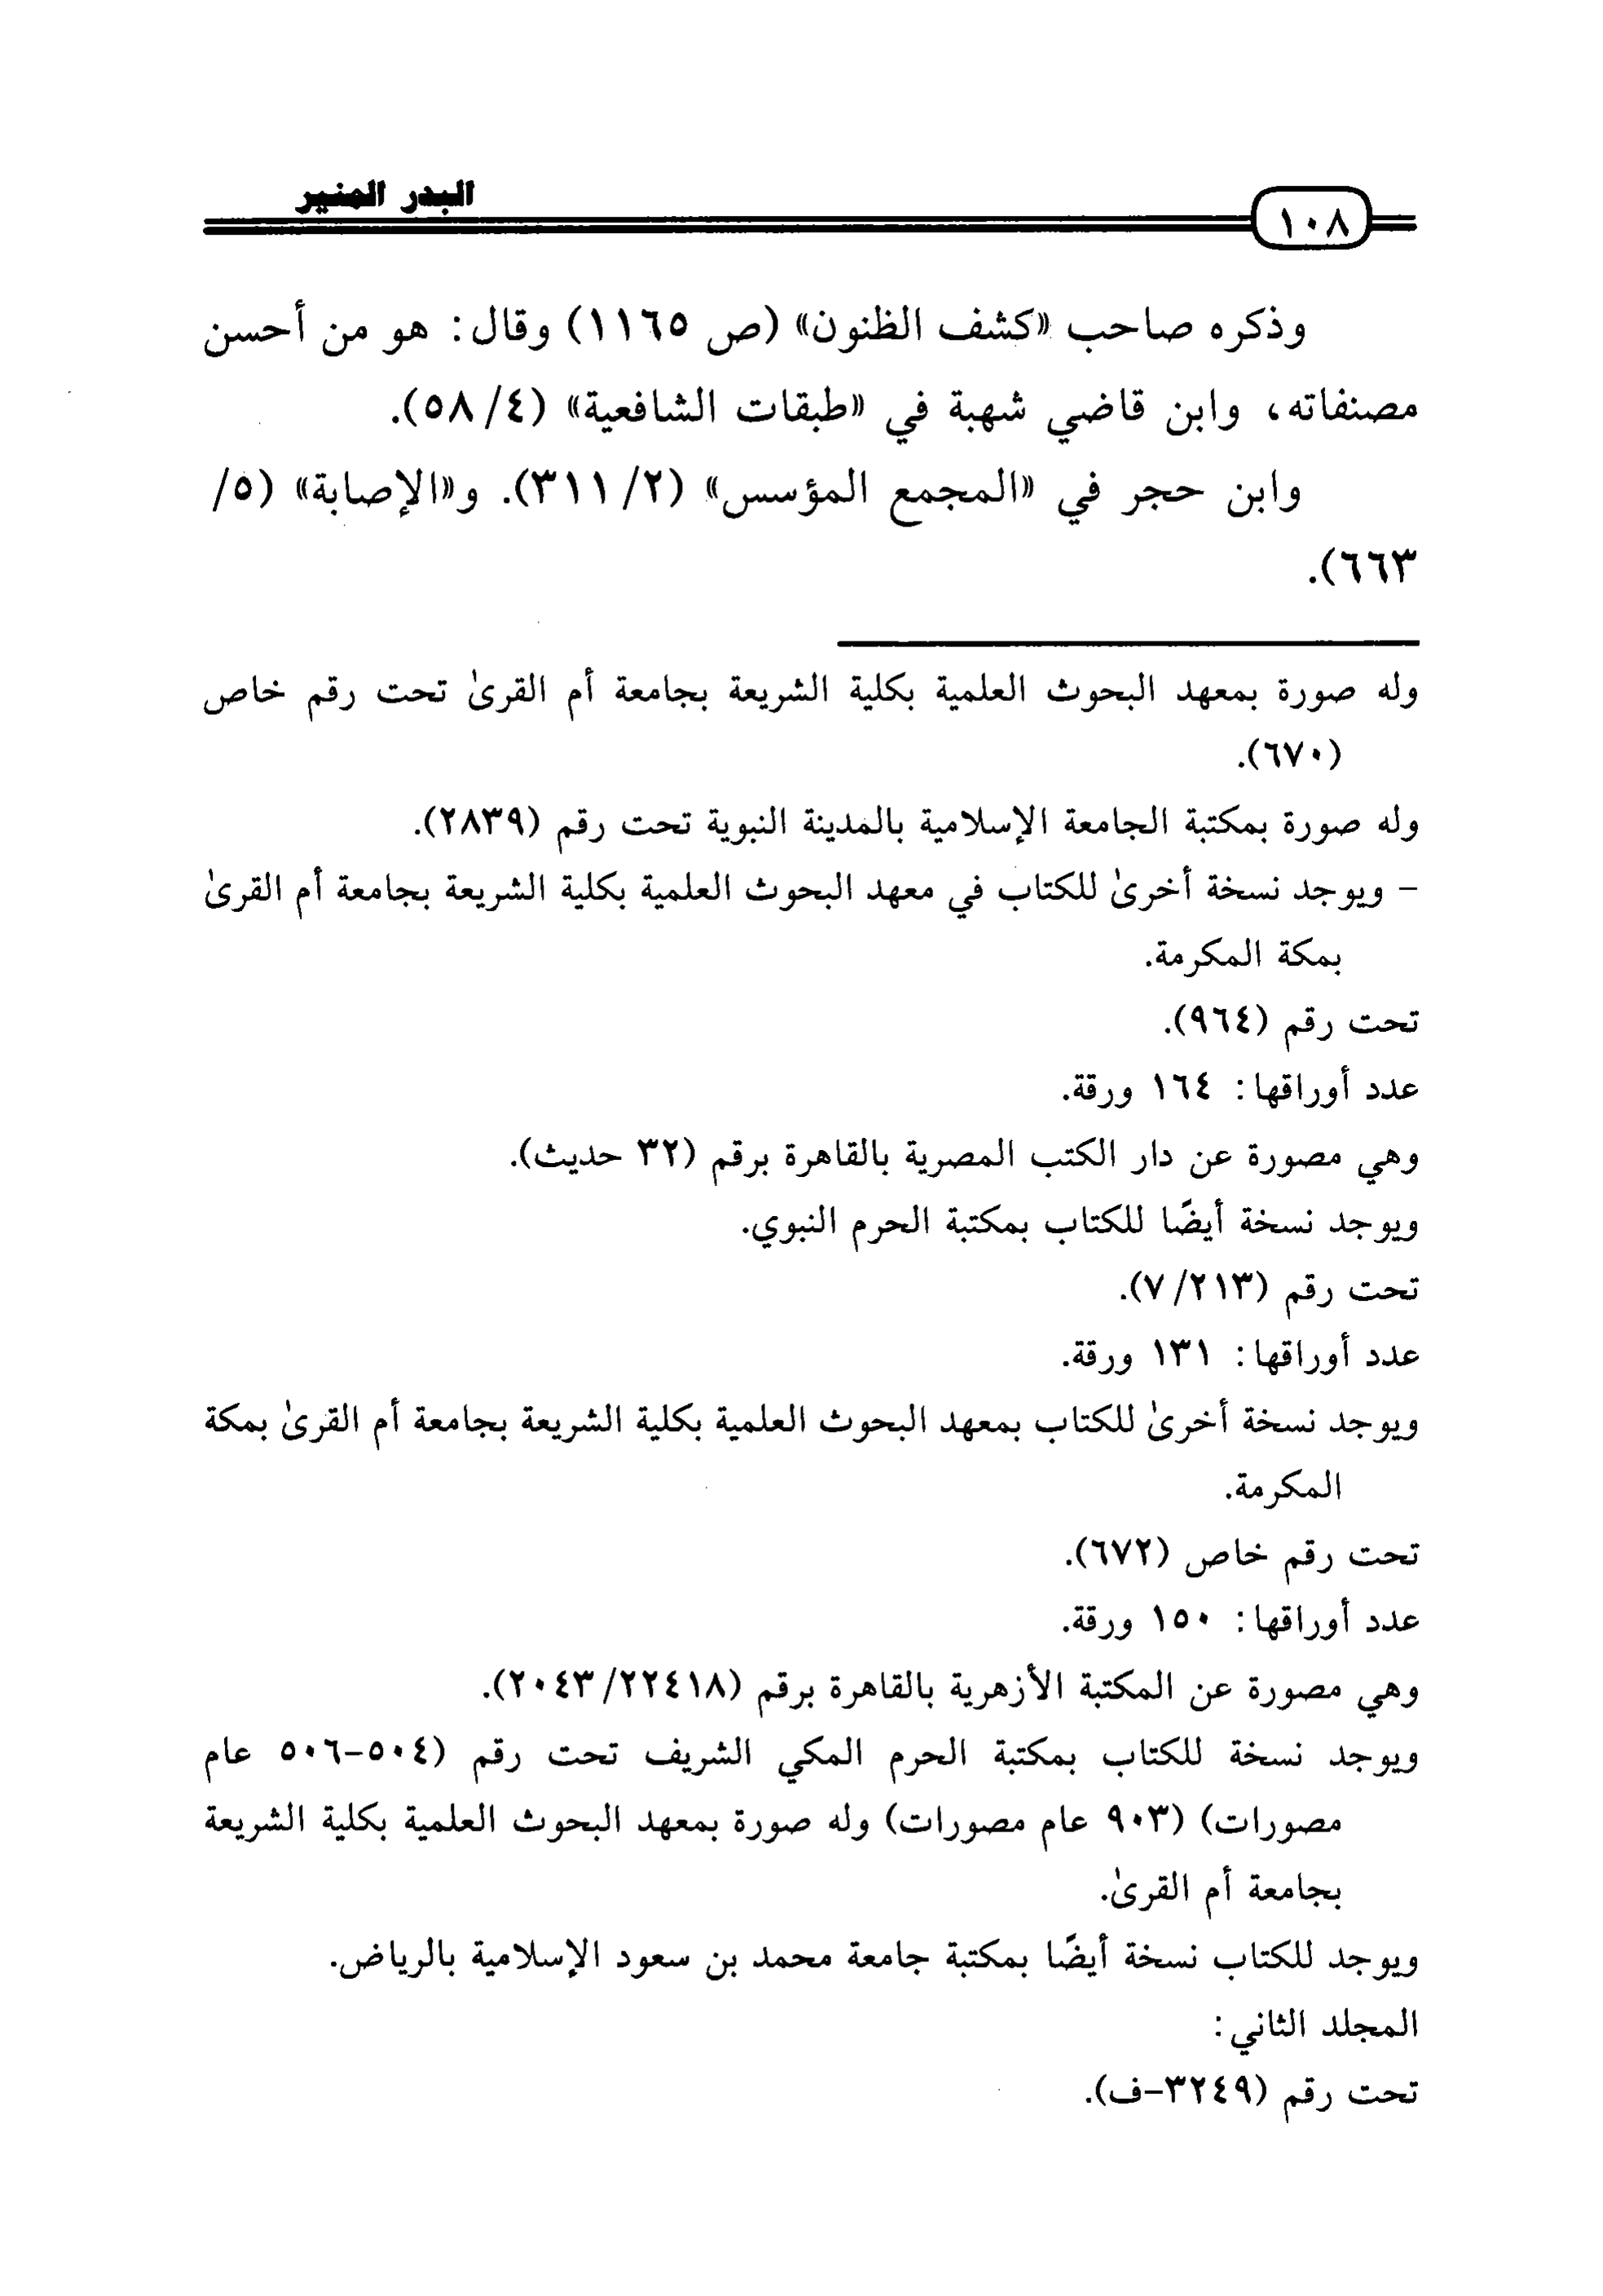 البدر المنير
١٠٨
وذكره صاحب «كشف الظنون» (ص ١١٦٥) وقال: هو من أحسن
مصنفاته، وابن قاضي شهبة في «طبقات الشافعية» (٤/ ٥٨).
وابن حجر في «المجمع المؤسس» (٢/ ٣١١). و«الإصابة» (٥/
٦٦٣).
وله صورة بمعهد البحوث العلمية بكلية الشريعة بجامعة أم القرىٰ تحت رقم خاص
(٦٧٠).
وله صورة بمكتبة الجامعة الإسلامية بالمدينة النبوية تحت رقم (٢٨٣٩).
- ويوجد نسخة أخرىٰ للكتاب في معهد البحوث العلمية بكلية الشريعة بجامعة أم القرىٰ
بمكة المكرمة.
تحت رقم (٩٦٤).
عدد أوراقها: ١٦٤ ورقة.
وهي مصورة عن دار الكتب المصرية بالقاهرة برقم (٣٢ حديث).
ويوجد نسخة أيضًا للكتاب بمكتبة الحرم النبوي.
تحت رقم (٢١٣/ ٧).
عدد أوراقها: ١٣١ ورقة.
ويوجد نسخة أخرىٰ للكتاب بمعهد البحوث العلمية بكلية الشريعة بجامعة أم القرىٰ بمكة
المكرمة.
تحت رقم خاص (٦٧٢).
عدد أوراقها: ١٥٠ ورقة.
وهي مصورة عن المكتبة الأزهرية بالقاهرة برقم (٢٢٤١٨/ ٢٠٤٣).
ويوجد نسخة للكتاب بمكتبة الحرم المكي الشريف تحت رقم (٥٠٤-٥٠٦ عام
مصورات) (٩٠٣ عام مصورات) وله صورة بمعهد البحوث العلمية بكلية الشريعة
بجامعة أم القرىٰ.
ويوجد للكتاب نسخة أيضًا بمكتبة جامعة محمد بن سعود الإسلامية بالرياض.
المجلد الثاني:
تحت رقم (٣٢٤٩-ف).